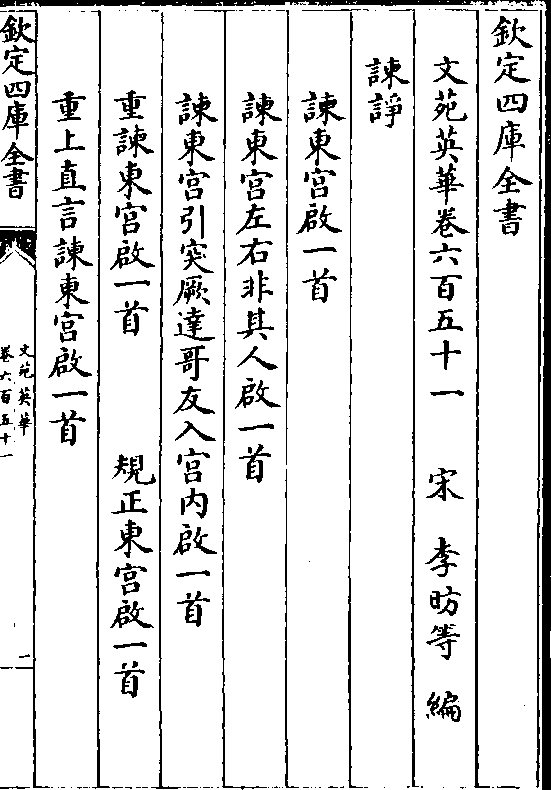 欽定四庫全書
文苑英華卷六百五十一 宋 李昉等 編
諫諍
諫東宮啟一首
諫東宮左右非其人啟一首
諫東宮引突厥達哥友入宮内啟一首
重諫東宮啟一首 規正東宮啟一首
重上直言諫東宮啟一首
欽定四庫全書
文苑英華
卷六百五十一